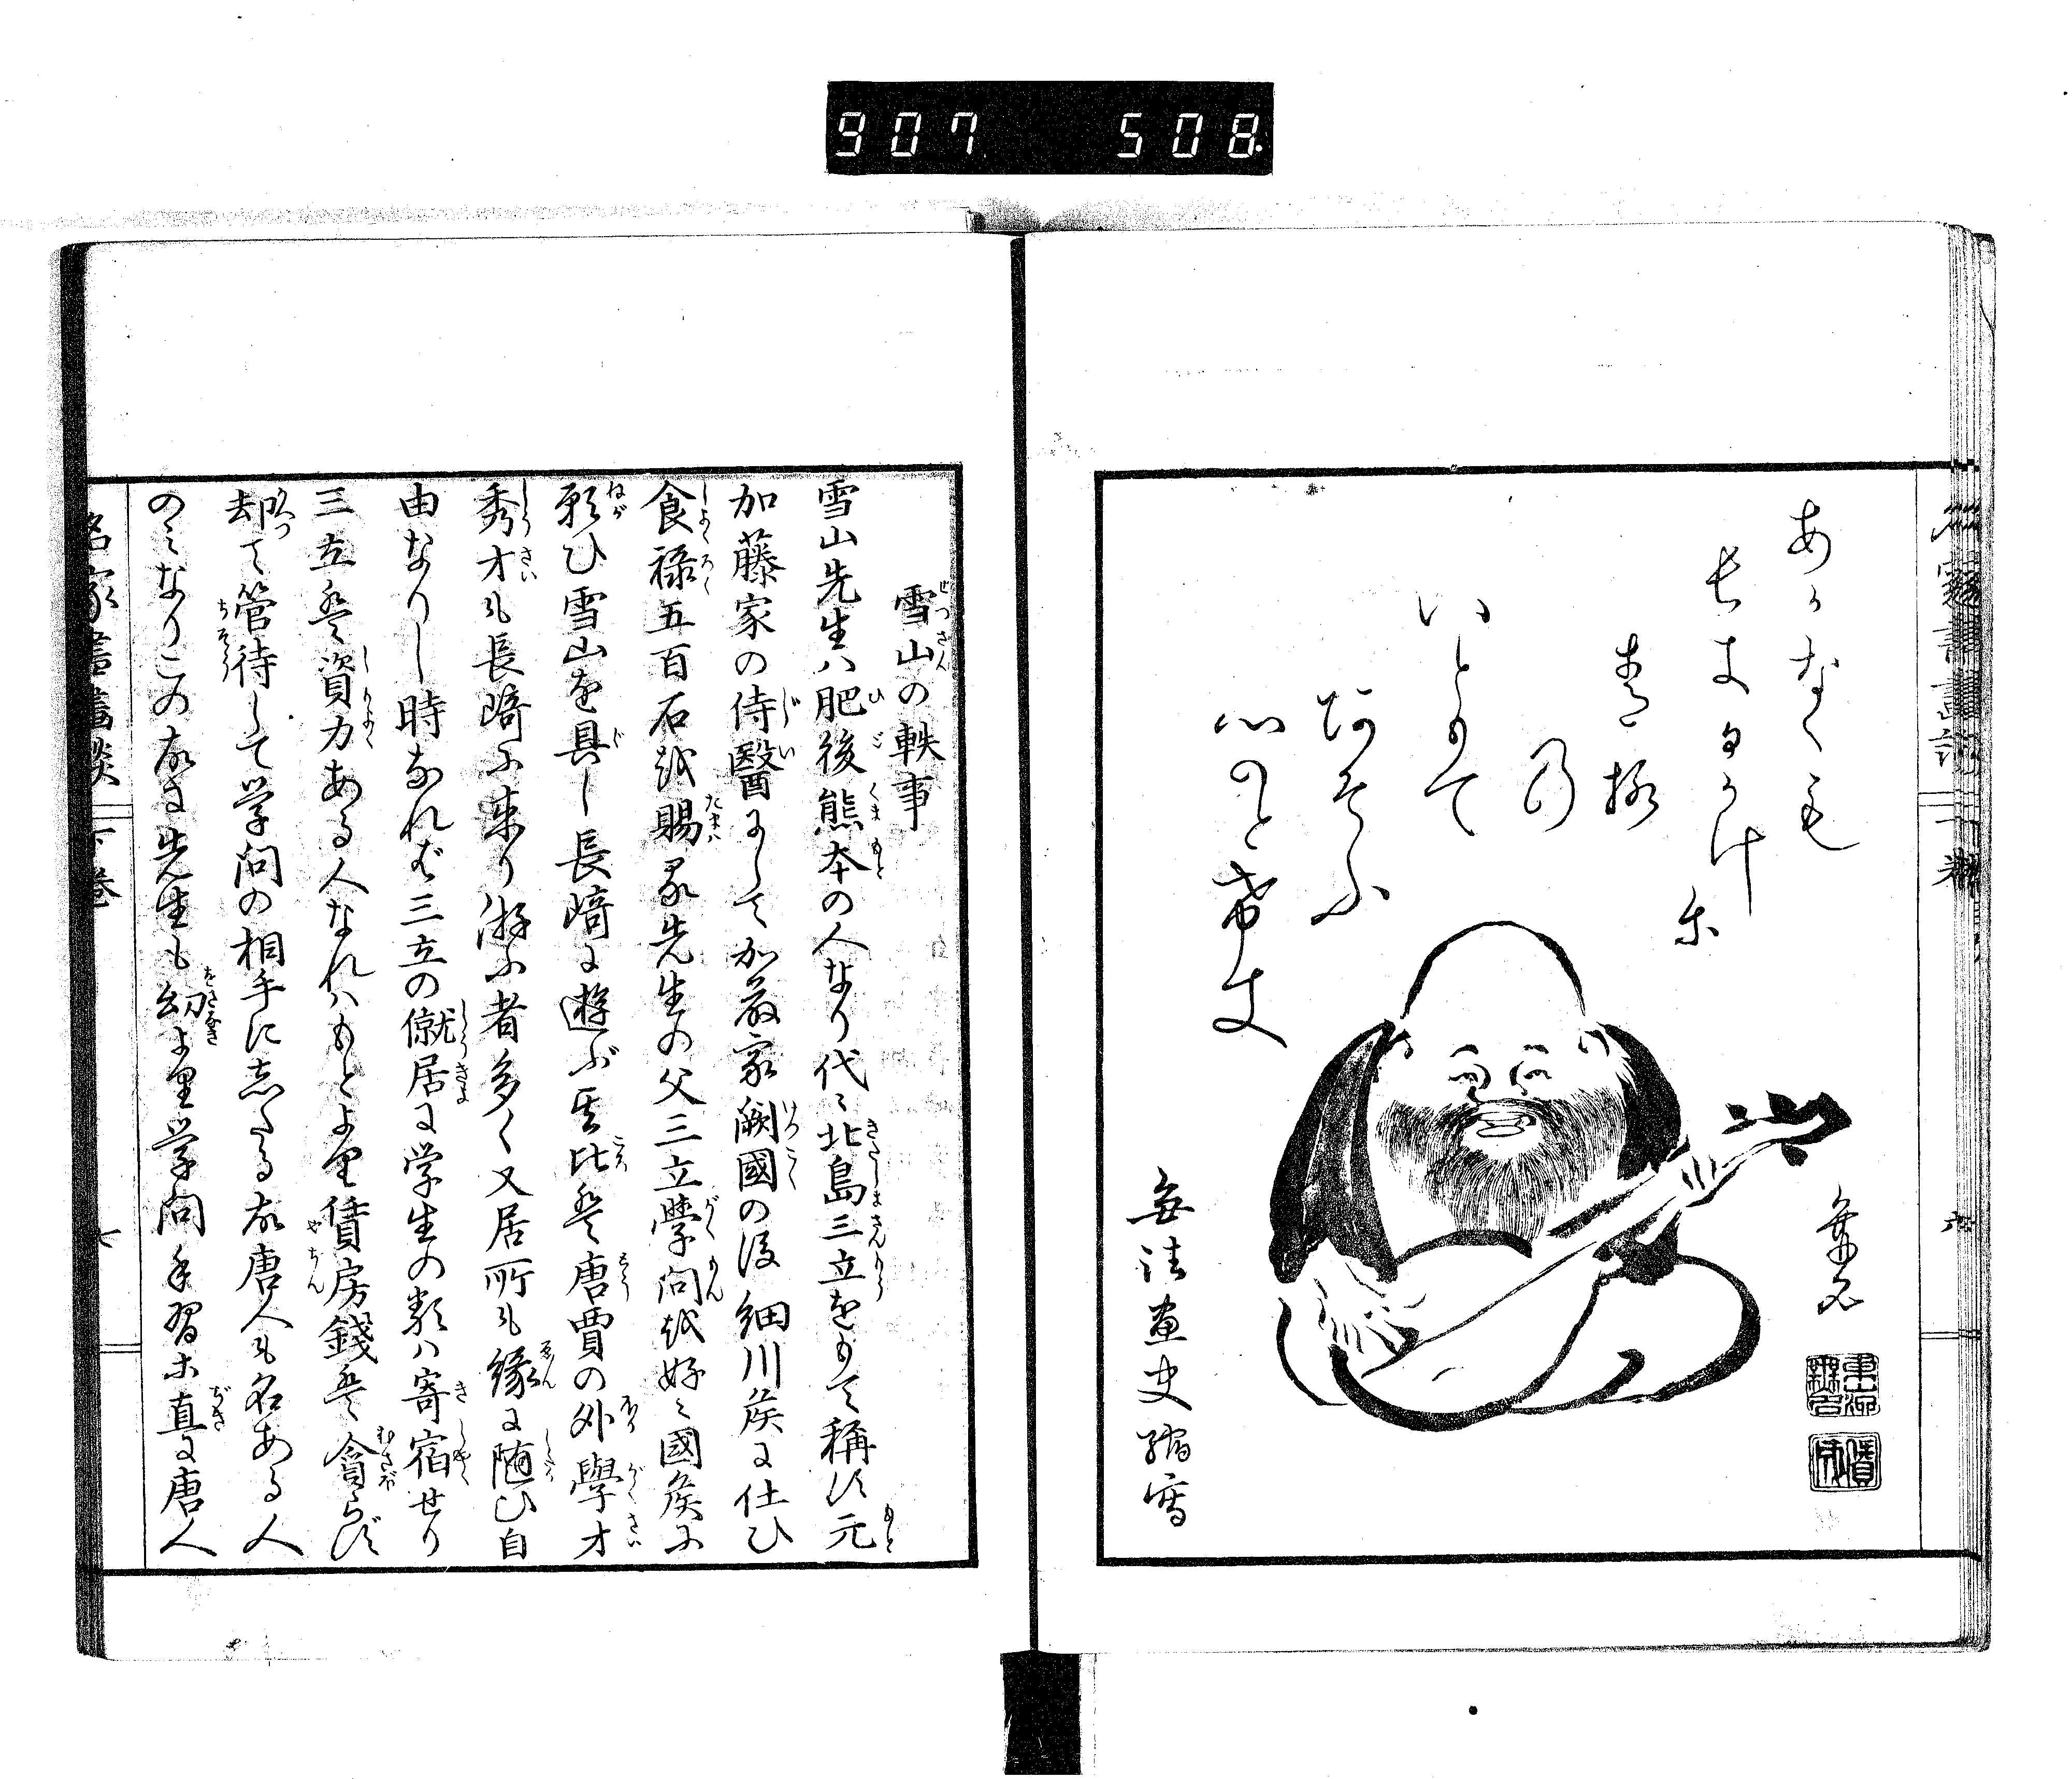 907 508
あかなくも
いとゆて
心のと
無法画史縮写
雪山の軼事
雪山先生ハ肥後熊本の人なり代々北島三立をもて称す元
加藤家の侍醫にして加藤家闕國の後細川侯に仕ひ
食禄五百石を賜る先生の父三立學問を好ミ國侯に
願ひ雪山を具し長崎に遊ぶ其比は唐賈の外學才
秀才も長崎に来り游ふ者多く又居所も縁に随ひ自
由なりし時なれば三立の僦居に学生の類ハ寄宿せり
三立は資力ある人なれハもとより賃房錢は貪らず
却て管待して学問の相手にしたる故唐人も名ある人
のミなりこの故に先生も幼より学問手習に直に唐人
名家書畫談 下巻 七